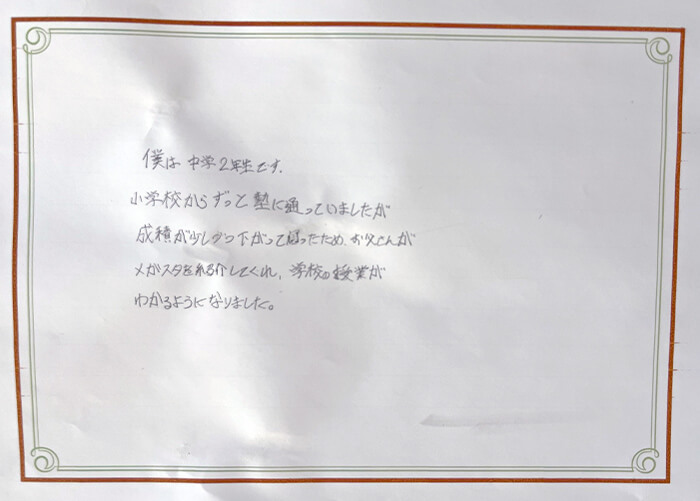 僕は中学2年生です.
小学校からずっと塾に通っていましたが
成績が少しづつ下がって困ったため、お父さんが
メガスタを紹介してくれ、学校の授業が
わかるようになりました。